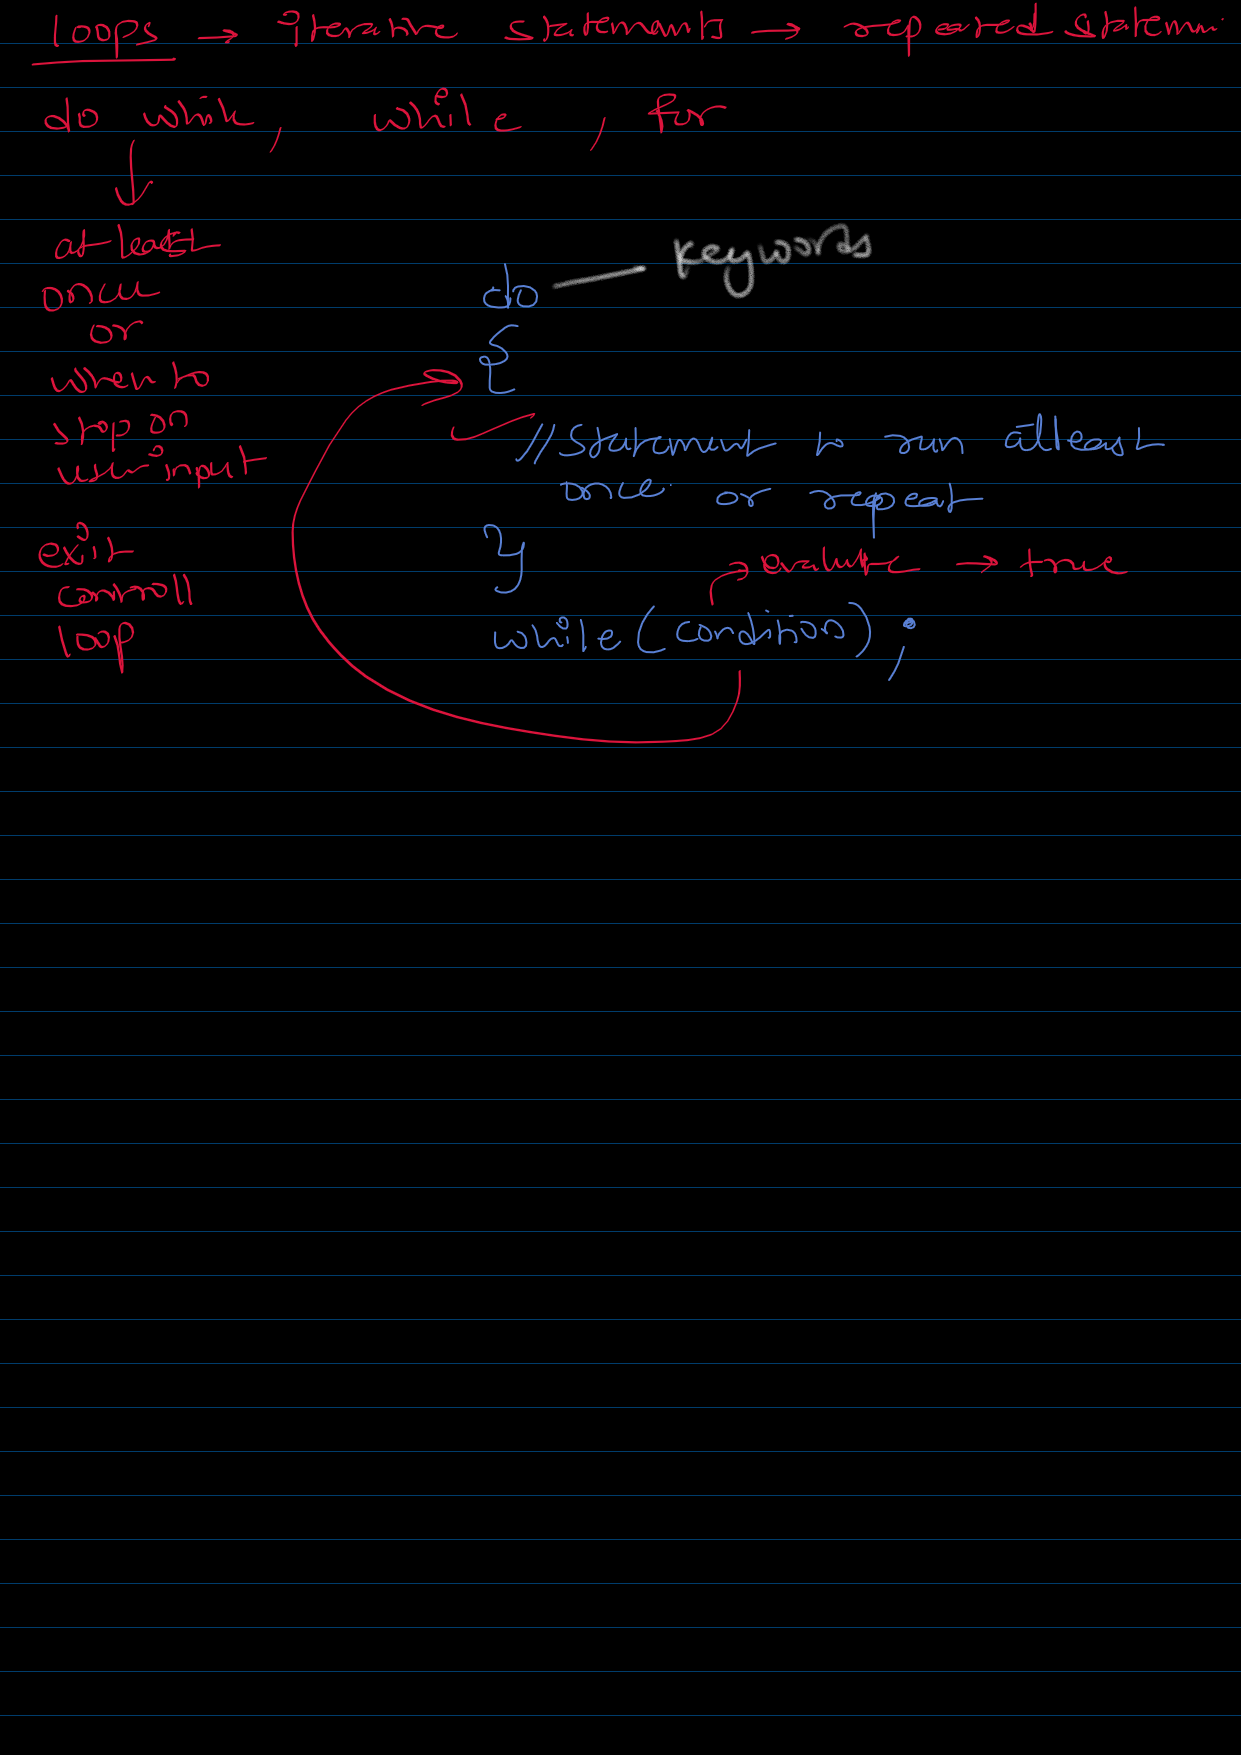 loops → iterative statements → repeated statemen
do while, while, for
at least
once
or
when to
stop on
user input
exit
controll
loop
do — keywords
{
//Statement to run atleast
once or repeat
}
→ evaluate → true
while (condition) ;